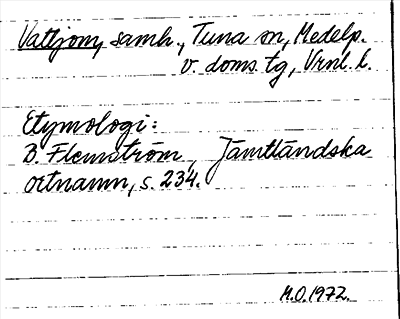 Vattjom, samh., Tuna sn, Medelp.
v. doms tg, Vrnl. l.
Etymologi:
B. Flemström, Jämtländska
ortnamn, s. 234.
M.O.1972.